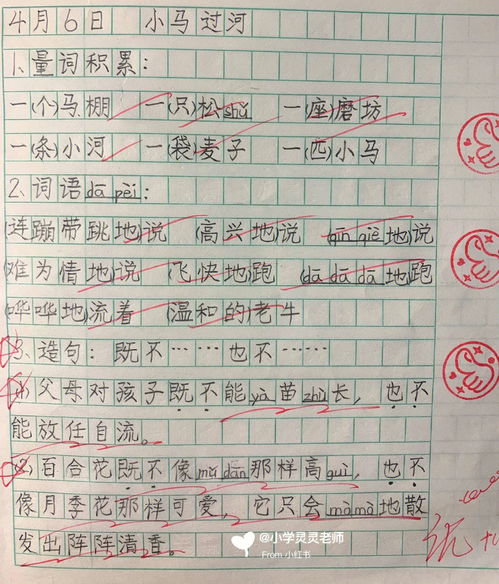 4月6日 小马过河
1、量词积累:
一(个)马棚 一(只)松shǔ 一(座)磨坊
一(条)小河 一(袋)麦子 一(匹)小马
2、词语dā pèi:
(连蹦带跳地)说 (高兴地)说 (qīn qiè地)说
(难为情地)说 (飞快地)跑 (dā dā dā地)跑
(哗哗地)流着 (温和的)老牛
3、造句: 既不……也不……
(1)父母对孩子既不能yà苗zhù长, 也不
能放任自流。
(2)百合花既不像mǔ dān那样高guì, 也不
像月季花那样可爱, 它只会mòmò地散
发出阵阵清香。
@小学灵灵老师
From 小红书